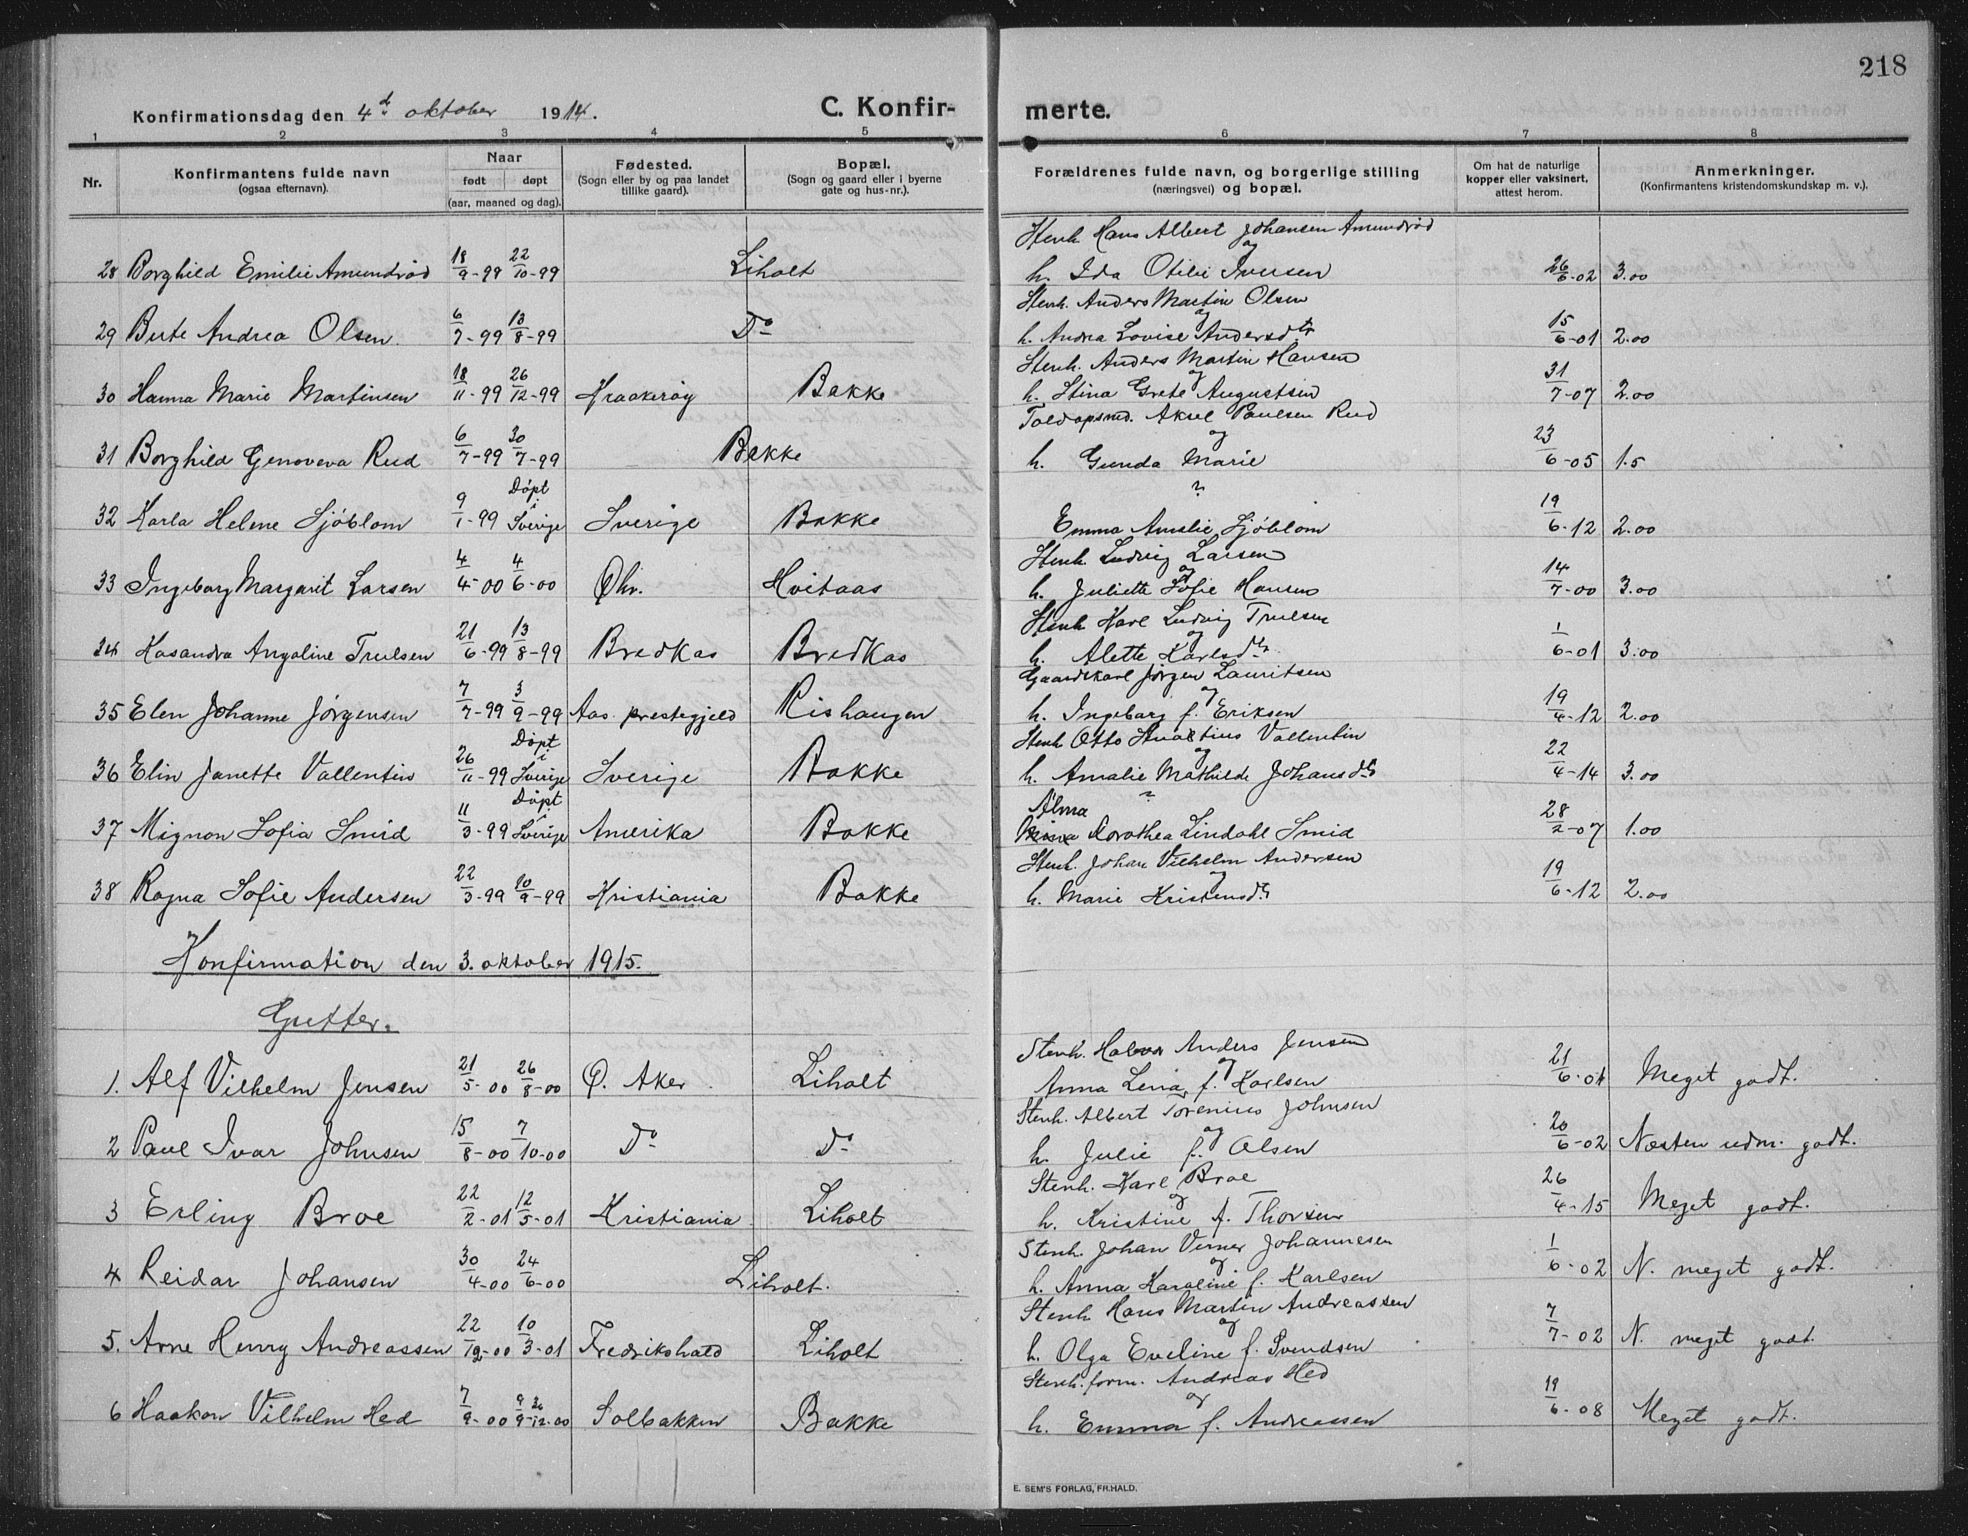 218
Konfirmationsdag den 4de oktober 1914.
C. Konfir-
merte.
1 2 3 4 5 6 7 8
Nr.
Konfirmantens fulde navn
(ogsaa efternavn).
Naar
født døpt
(aar, maaned og dag).
Fødested.
(Sogn eller by og paa landet
tillike gaard).
Bopæl.
(Sogn og gaard eller i byerne
gate og hus-nr.).
Forældrenes fulde navn, og borgerlige stilling
(næringsvei) og bopæl.
Om hat de naturlige
kopper eller vaksinert,
attest herom.
Anmerkninger.
(Konfirmantens kristendomskundskap m. v.).
Stenh. Hans Albert Johansen Amundrød
og
28 Borghild Emilie Amundrød 18/9-99 22/10-99 Liholt h. Ida Otilie Iversen 26/6-02 3.00
Stenh. Anders Martin Olsen
og
29 Berte Andrea Olsen 6/7-99 13/8-99 Do h. Andrea Lovise Andersdtr 15/6-01 2.00
Stenh. Anders Martin Hansen
og
30 Hanna Marie Martinsen 18/11-99 26/12-99 Kraakerøy Bakke h. Stina Grete Augustsen 31/7-07 2.00
Toldopsmd. Aksel Paulsen Rud
og
31 Borghild Genoveva Rud 6/7-99 30/7-99 Bakke h. Gunda Marie 23/6-05 1.5
?
32 Karla Helene Sjöblom 9/1-99 Døpt i Sverige Sverige Bakke Emma Amalie Sjöblom 19/6-12 2.00
Stenh. Ludvig Larsen
og
33 Ingeborg Margarit Larsen 4/4-00 4/6-00 Øhr. Hvitaas h. Juliette Sofie Hansen 14/7-00 3.00
Stenh. Karl Ludvig Trulsen
og
34 Kasandra Angoline Trulsen 21/6-99 13/8-99 Bredkas Bredkas h. Alette Karlsdtr 1/6-01 3.00
Gaardskarl Jørgen Lauritsen
og
35 Elen Johanne Jørgensen 7/7-99 3/9-99 Aas prestegjeld Rishaugen h. Ingeborg f. Eriksen 19/4-12 2.00
Stenh. Otto Vallentin
og
36 Elin Janette Vallentin 26/11-99 Døpt i Sverige Sverige Bakke h. Amalie Mathilde Johansdtr 22/4-14 3.00
?
Alma
37 Mignon Sofia Smid 11/3-99 Døpt i Sverige Amerika Bakke Dorothea Lindahl Smid 28/2-07 1.00
Stenh. Johan Vilhelm Andersen
og
38 Ragna Sofie Andersen 22/3-99 10/9-99 Kristiania Bakke h. Marie Kristensdtr 19/6-12 2.00
Konfirmation den 3. oktober 1915.
Gutter.
Stenh. Halvor Anders Jensen
og
1. Alf Vilhelm Jensen 21/5-00 26/8-00 Ø. Aker Liholt Anna Lena f. Karlsen 21/6-01 Meget godt.
Stenh. Albert Torenius Johnsen
og
2 Paul Ivar Johnsen 15/8-00 7/10-00 Do Do h. Julie f. Olsen 20/6-02 Næsten udm. godt.
Stenh. Karl Broe
og
3 Erling Broe 22/2-01 12/5-01 Kristiania Liholt h. Kristine f. Thorsen 26/4-15 Meget godt.
Stenh. Johan Verner Johannesen
og
4 Reidar Johansen 30/4-00 24/6-00 Liholt. h. Anna Karoline f. Karlsen 1/6-02 N. meget godt.
Stenh. Hans Martin Andreassen
og
5. Arne Henry Andreassen 22/12-00 10/3-01 Fredrikshald Liholt h. Olga Eveline f. Svendsen 7/7-02 N. meget godt.
Stenh. form. Andreas Hed
og
6 Haakon Vilhelm Hed 7/9-00 9/9 26/12-00 Solbakken Bakke h. Emma f. Andreassen 19/6-08 Meget godt.
E. SEM'S FORLAG, FR.HALD.